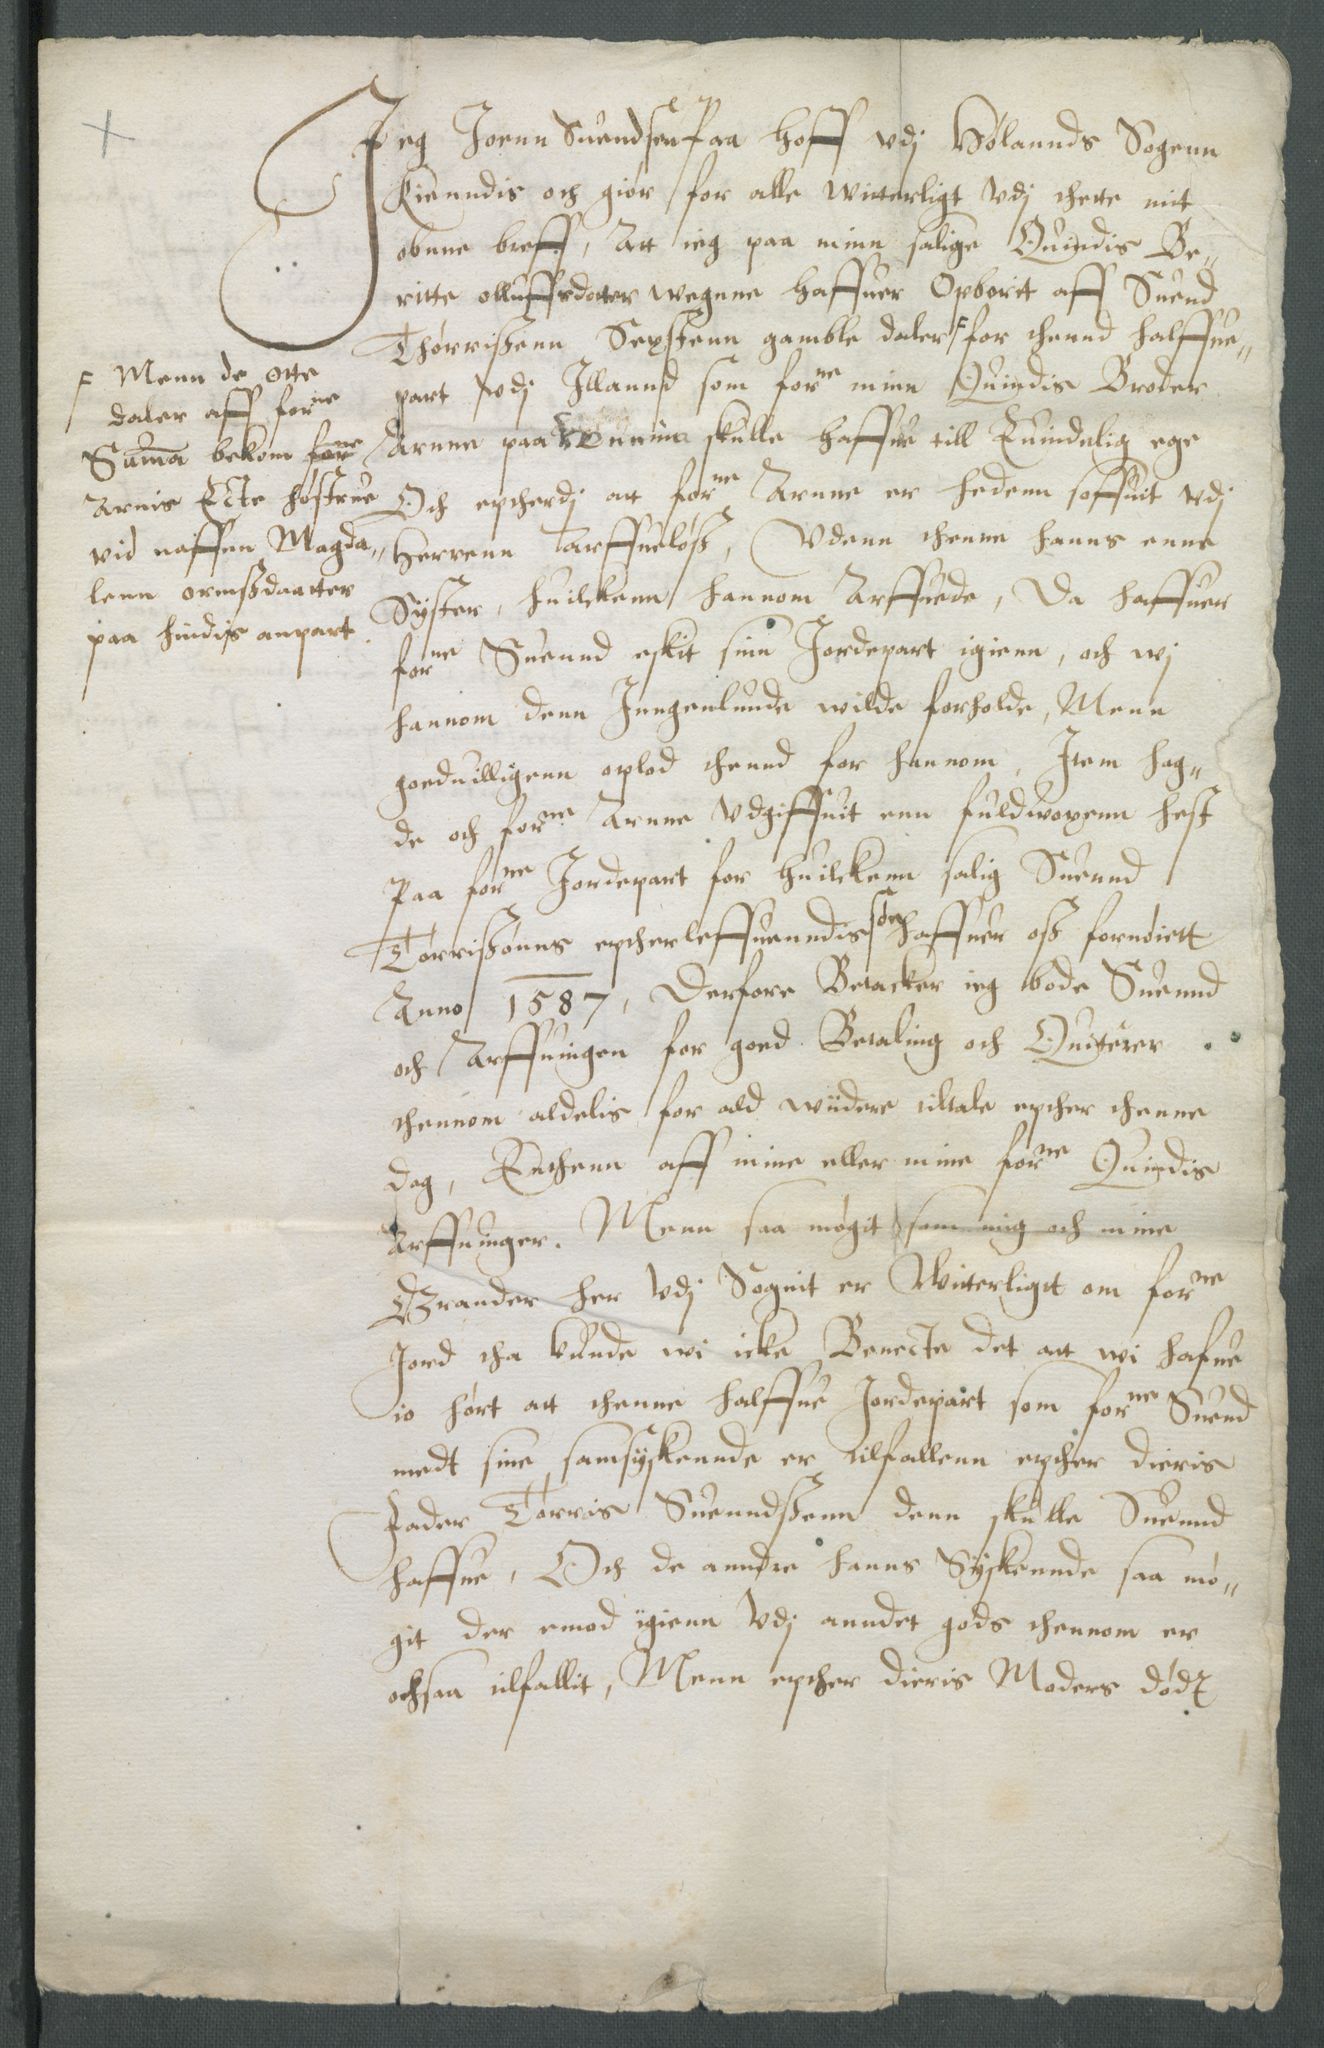 Jeg Joenn Suendsen paa Hoff vdj Hølannds Sogenn
Kienndis och giør for alle witterligt vdj thette mit
obnne breff, Att ieg paa minn salige Quindis Be„
ritte olluffsdotter wegnne haffuer Opborit aff Suend
Thørrißenn Sexstenn gamble daler F for thennd halffue„
part vdj Illannd som forne minn Quindis Broder
Arnne paa skulle haffue till Euindelig eye
Och epterdj att forne Arnne er hedenn soffuit vdj
Herrenn Arffueløß, Vdenn thenne hanns enne
Syster, huilckenn hannom Arffuede, Da haffuer
forne Suennd eskit sinn Jordepart igienn, och wj
hannom denn Inngenlunde wilde forholde, Menn
goeduilligenn oplod thennd for hannom, Item hag„
de och forne Arnne Vdgiffuit enn fuldwoxenn hest
Paa forne Jordepart for huilckenn salig Suennd
Torrißønns epcherleffuenndis søn haffuer oß fornøiett
Anno 1587, Derfore Betacker ieg bode Suennd
och Arffuingen for goed Betaling och Quiterer
thennom aldelis for ald widere tiltale epther thenne
dag, Enthenn aff mine eller mine forne Quindis
Arffuinger. Menn saa møgit som mig och mine
Grander her Vdj Sognit er Witterligt om forne
Jord tha kunde wi icke Benecte det att wi hafue
io hørt att thenne halffue Jordepart som forne Suend
medt sine samsyskennde er tilfallenn epther dieris
Fader Torris Suenndßenn denn skulle Suennd
haffue, Och de anndre hanns Syskennde saa mø„
git der emod igienn Vdj anndet gods thennom er
ochsaa tilfallit, Menn epther dieris Moders dødt
F Menn de otte
daler aff forne
Suma bekom forne
Arnis Ecte høstrue
vid naffnn Magda„
lenn ormßdaatter
paa hindis anpart